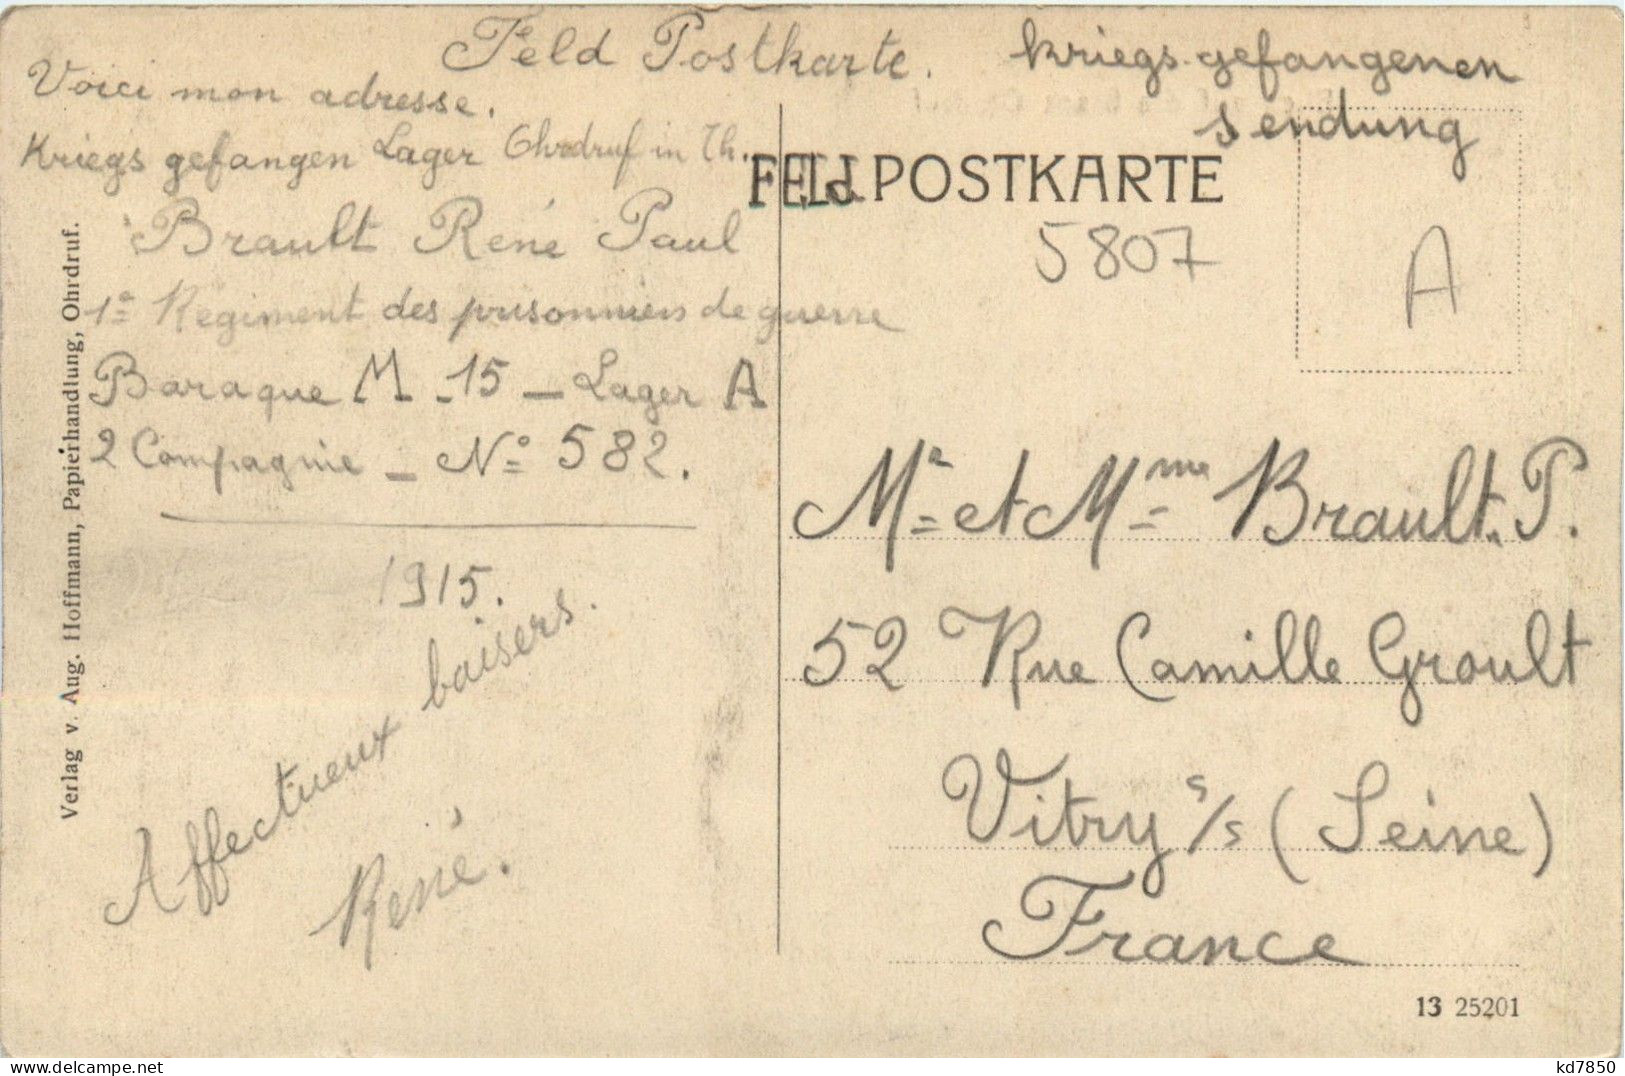 Feld Postkarte. Kriegs-gefangenen
sendung
Voici mon adresse.
Kriegs gefangen Lager Ohrdruf in Th.
Brault René Paul
1e Regiment des prisonniers de guerre
Baraque M - 15 - Lager A
2 Compagnie - No 582.
1915.
Affectueux baisers.
René.
Verlag v. Aug. Hoffmann, Papierhandlung, Ohrdruf.
FELd POSTKARTE
5807
A
Mr et Mme Brault. P.
52 Rue Camille Groult
Vitry s/s (Seine)
France
13 25201
kd7850